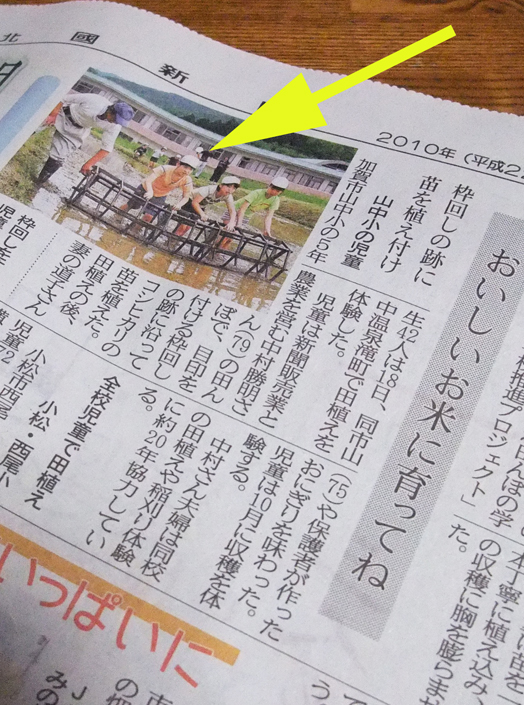 北國新
2010年(平成2
おいしいお米に育ってね
枠回しの跡に
苗を植え付け
山中小の児童
加賀市山中小の5年
生42人は18日、同市山
中温泉滝町で田植えを
体験した。
児童は新聞販売業と
農業を営む中村勝明さ
ん(79)の田ん
ぼで、目印を
付ける枠回し
の跡に沿って
コシヒカリの
苗を植えた。
田植えの後、
妻の道子さん
(75)や保護者が作った
おにぎりを味わった。
児童は10月に収穫を体
験する。
中村さん夫婦は同校
の田植えや稲刈り体験
に約20年協力してい
る。
枠回しを
児童
全校児童で田植え
小松・西尾小
小松市西尾
児童72
推進プロジェクト」
んぼの学
苗を一
本丁寧に植え込み、
の収穫に胸を膨らま
た。
いっぱいに